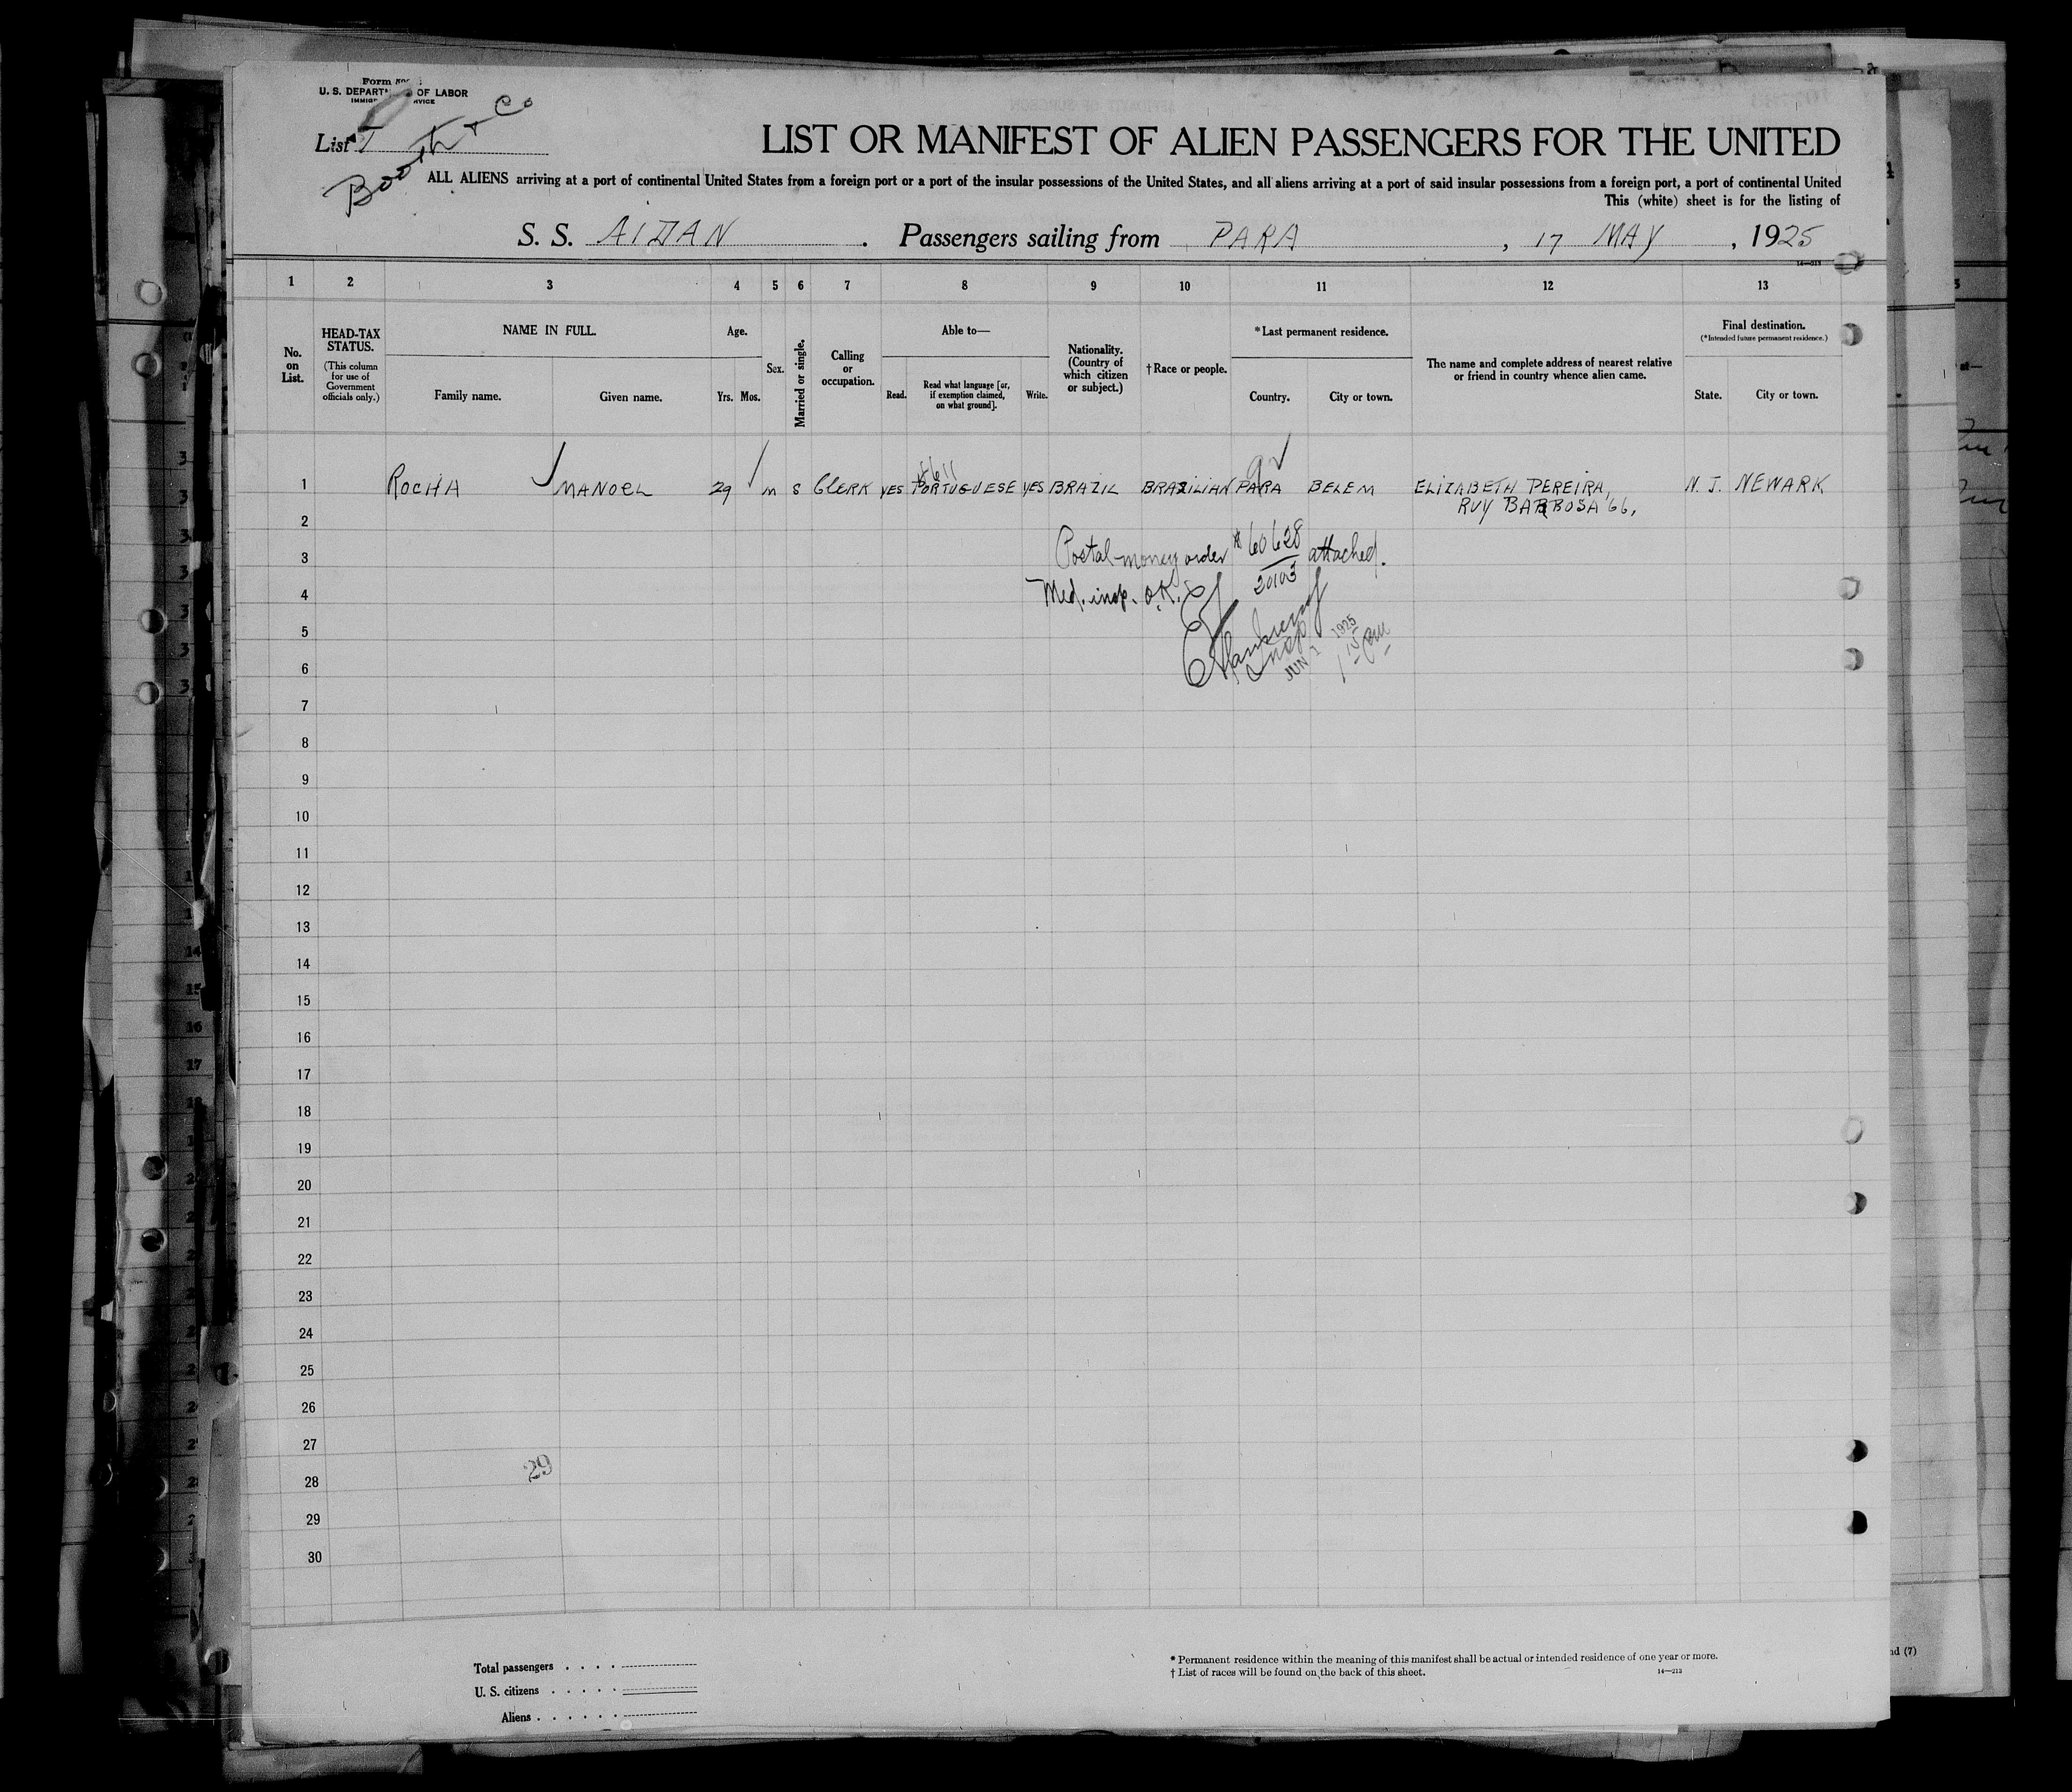 Form
U. S. DEPARTMENT OF LABOR
IMMIGRATION SERVICE
Booth & Co
List
LIST OR MANIFEST OF ALIEN PASSENGERS FOR THE UNITED
ALL ALIENS arriving at a port of continental United States from a foreign port or a port of the insular possessions of the United States, and all aliens arriving at a port of said insular possessions from a foreign port, a port of continental United
This (white) sheet is for the listing of
S. S. AIDAN . Passengers sailing from PARA , 17 MAY , 1925
1 2 3 4 5 6 7 8 9 10 11 12 13
No. on List.
HEAD-TAX STATUS.
(This column for use of Government officials only.)
NAME IN FULL.
Family name. Given name.
Age.
Yrs. Mos.
Sex.
Married or single.
Calling or occupation.
Able to—
Read. Read what language [or, if exemption claimed, on what ground]. Write.
Nationality. (Country of which citizen or subject.)
†Race or people.
*Last permanent residence.
Country. City or town.
The name and complete address of nearest relative or friend in country whence alien came.
Final destination.
(*Intended future permanent residence.)
State. City or town.
1 ROCHA MANOEL 29 M S CLERK YES PORTUGUESE YES BRAZIL BRAZILIAN PARA BELEM ELIZABETH PEREIRA, N. J. NEWARK
RUY BARBOSA 66,
2
3 Postal money order # 60628 attached.
20103
4 Med. insp. O.K.
5
6
JUN 1 1925
7
8
9
10
11
12
13
14
15
16
17
18
19
20
21
22
23
24
25
26
27
28
29
29
30
Total passengers
U. S. citizens
Aliens
* Permanent residence within the meaning of this manifest shall be actual or intended residence of one year or more.
† List of races will be found on the back of this sheet.
14—213
nd (7)